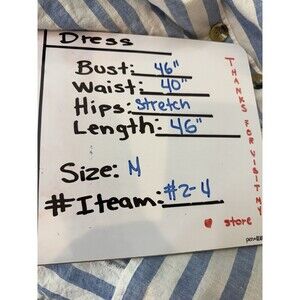 Dress
Bust: 46"
Waist: 40"
Hips: Stretch
Length: 46"
Size: M
#Iteam: #2-4
THANKS FOR VISIT MY
store